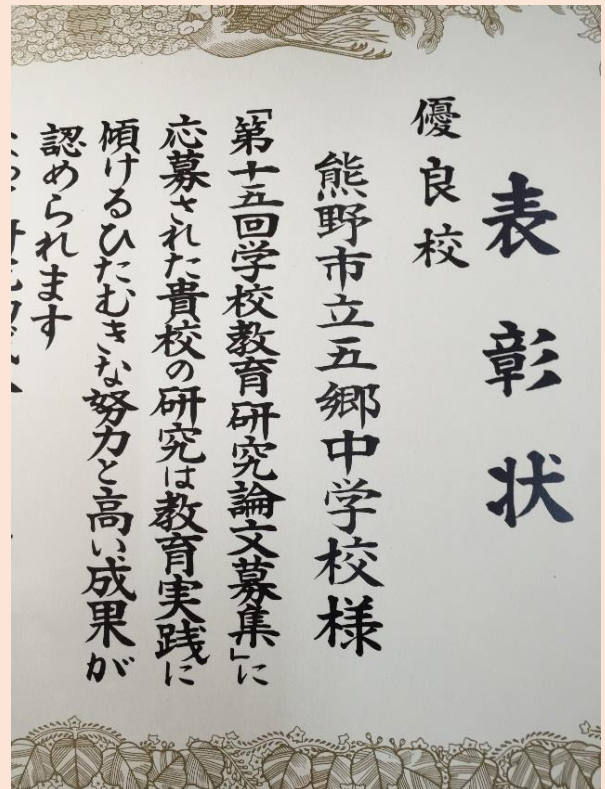 表彰状
優良校
熊野市立五郷中学校様
「第十五回学校教育研究論文募集」に
応募された貴校の研究は教育実践に
傾けるひたむきな努力と高い成果が
認められます